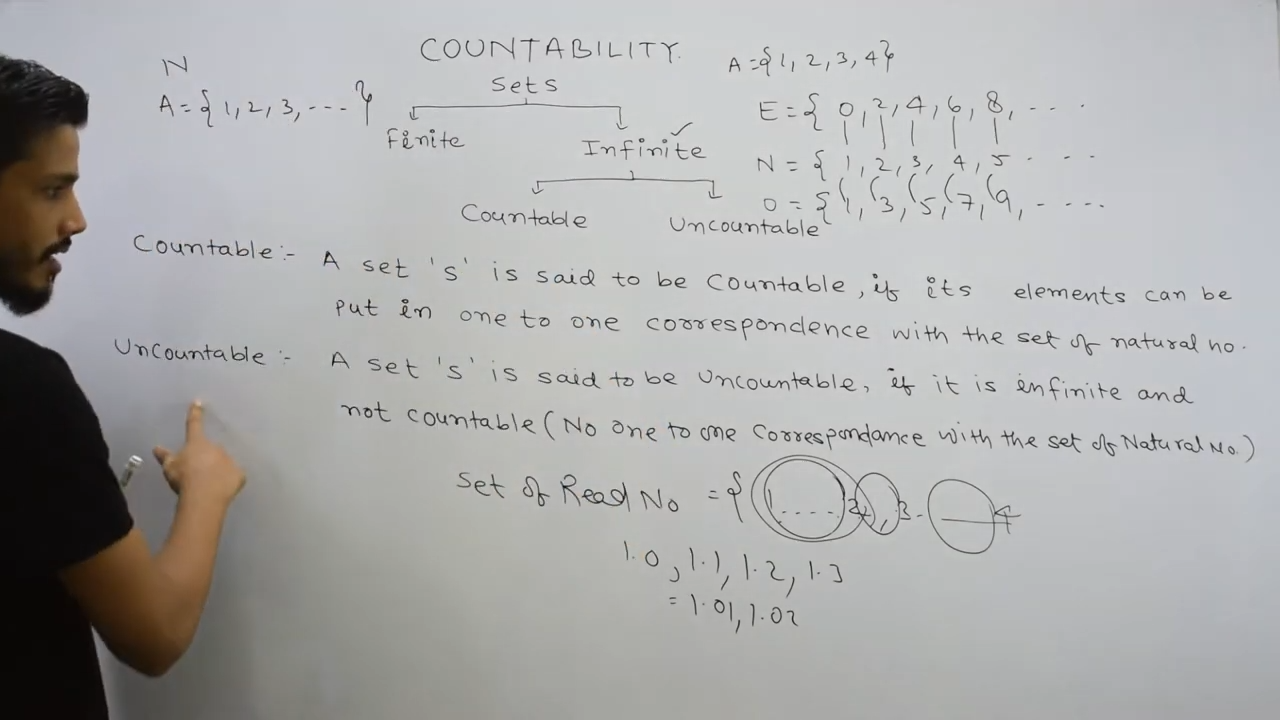 COUNTABILITY.
N
A = {1, 2, 3, ---- }
Sets
Finite
Infinite ✓
Countable
Uncountable
A = {1, 2, 3, 4}
E = { 0, 2, 4, 6, 8, - - - .
N = { 1, 2, 3, 4, 5 - - -
O = { 1, 3, 5, 7, 9, - - - - .
Countable :- A set 's' is said to be Countable, if its elements can be
put in one to one correspondence with the set of natural no.
Uncountable :- A set 's' is said to be Uncountable, if it is infinite and
not countable ( No one to one Correspondance with the set of Natural No. )
Set of Real No = { 1 . . . . 2, 3 - 4
1.0, 1.1, 1.2, 1.3
= 1.01, 1.02